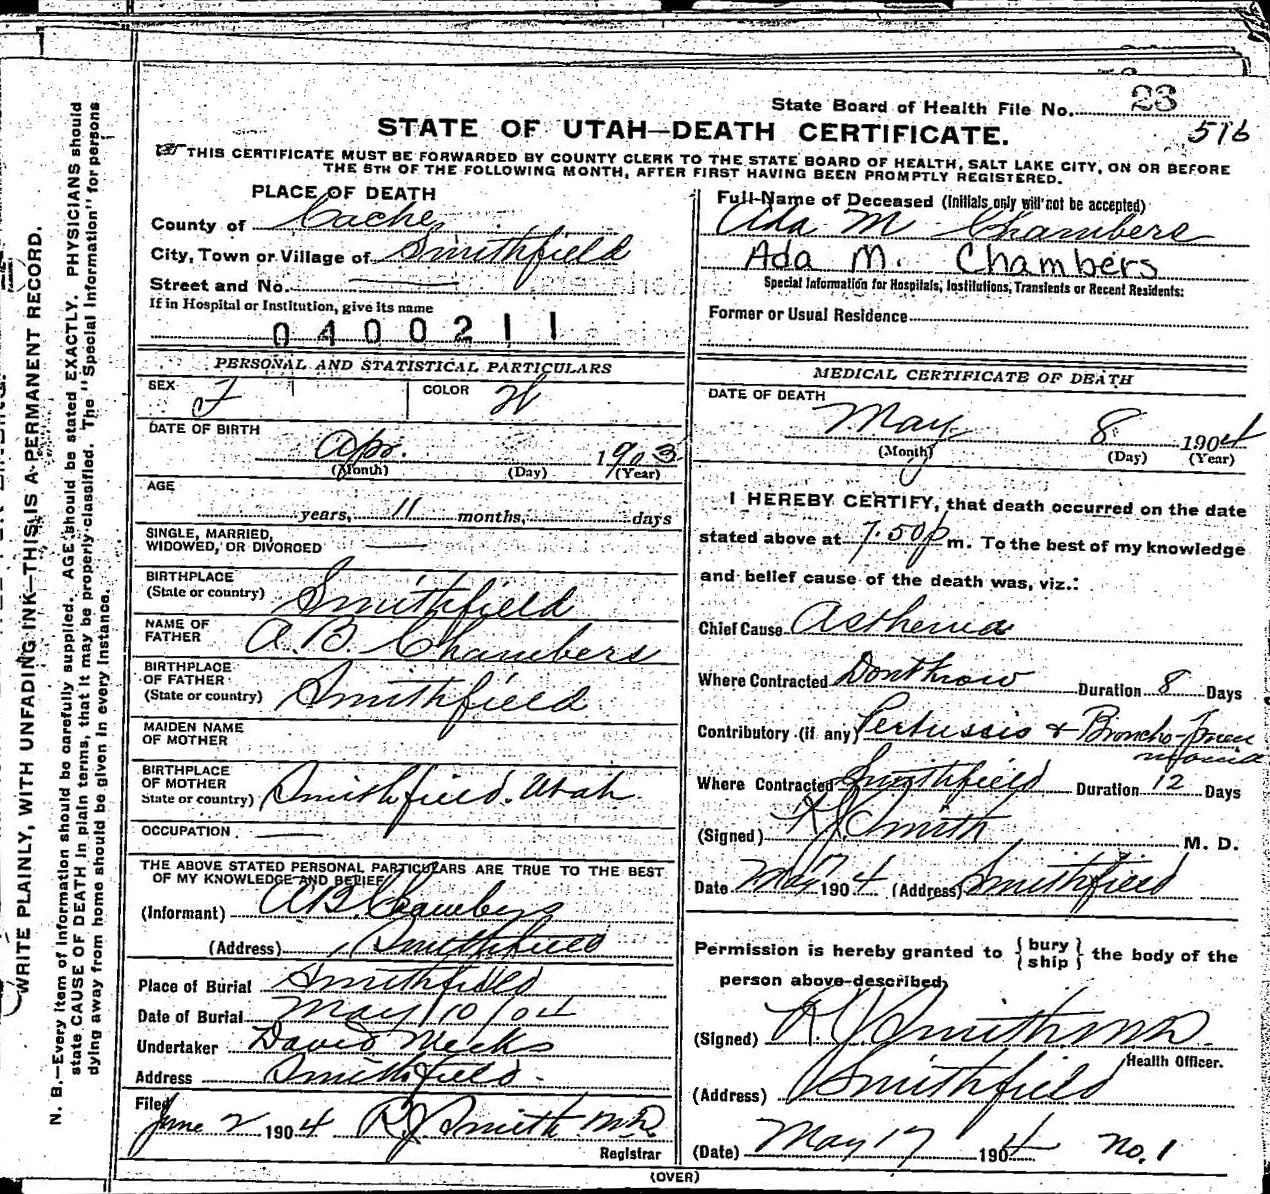 State Board of Health File No. 23
516
STATE OF UTAH—DEATH CERTIFICATE.
THIS CERTIFICATE MUST BE FORWARDED BY COUNTY CLERK TO THE STATE BOARD OF HEALTH, SALT LAKE CITY, ON OR BEFORE
THE 5TH OF THE FOLLOWING MONTH, AFTER FIRST HAVING BEEN PROMPTLY REGISTERED.
WRITE PLAINLY, WITH UNFADING INK—THIS IS A PERMANENT RECORD.
N. B.—Every item of information should be carefully supplied. AGE should be stated EXACTLY. PHYSICIANS should
state CAUSE OF DEATH in plain terms, that it may be properly classified. The "Special Information" for persons
dying away from home should be given in every instance.
PLACE OF DEATH
County of Cache
City, Town or Village of Smithfield
Street and No. —
If in Hospital or Institution, give its name
0400211
PERSONAL AND STATISTICAL PARTICULARS
SEX F COLOR W
DATE OF BIRTH
Apr. 1903
(Month) (Day) (Year)
AGE
years, 11 months, days
SINGLE, MARRIED,
WIDOWED, OR DIVORCED —
BIRTHPLACE
(State or country) Smithfield
NAME OF
FATHER A B Chambers
BIRTHPLACE
OF FATHER
(State or country) Smithfield
MAIDEN NAME
OF MOTHER
BIRTHPLACE
OF MOTHER
State or country) Smithfield. Utah
OCCUPATION —
THE ABOVE STATED PERSONAL PARTICULARS ARE TRUE TO THE BEST
OF MY KNOWLEDGE AND BELIEF
(Informant) A B Chambers
(Address) Smithfield
Place of Burial Smithfield
Date of Burial May 10/04
Undertaker David Meeks
Address Smithfield.
Filed
June 2 1904 R J Smith M.D.
Registrar
Full Name of Deceased (Initials only will not be accepted)
Ada M Chambers
Ada M. Chambers
Special Information for Hospitals, Institutions, Transients or Recent Residents:
Former or Usual Residence
MEDICAL CERTIFICATE OF DEATH
DATE OF DEATH
May 8 1904
(Month) (Day) (Year)
I HEREBY CERTIFY, that death occurred on the date
stated above at 7.50 p m. To the best of my knowledge
and belief cause of the death was, viz.:
Chief Cause Asthenia
Where Contracted Dont know Duration 8 Days
Contributory (if any) Pertussis & Broncho-Pneu
monia
Where Contracted Smithfield Duration 12 Days
(Signed) R J Smith M. D.
Date May 17 1904 (Address) Smithfield
Permission is hereby granted to {bury ship} the body of the
person above described,
(Signed) R. J. Smith MD.
Health Officer.
(Address) Smithfield
(Date) May 17 1904 No. 1
(OVER)